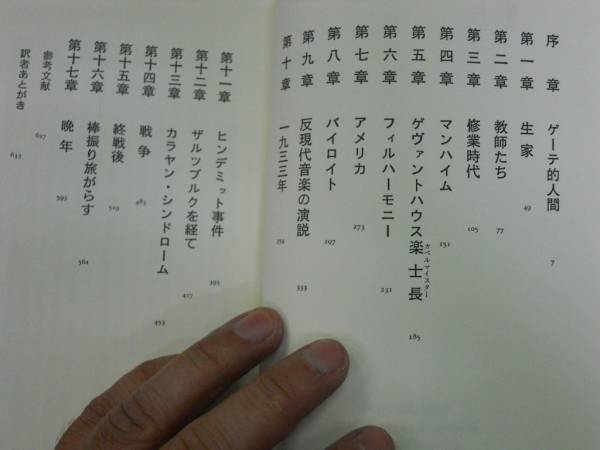 序章 ゲーテ的人間 7
第一章 生家 49
第二章 教師たち 77
第三章 修業時代 105
第四章 マンハイム 151
第五章 ゲヴァントハウス楽士長 カペルマイスター 185
第六章 フィルハーモニー 231
第七章 アメリカ 273
第八章 バイロイト 297
第九章 反現代音楽の演説 333
第十章 一九三三年 351
第十一章 ヒンデミット事件 395
第十二章 ザルツブルクを経て 427
第十三章 カラヤン・シンドローム 453
第十四章 戦争 483
第十五章 終戦後 519
第十六章 棒振り旅がらす 561
第十七章 晩年 593
参考文献 627
訳者あとがき 633